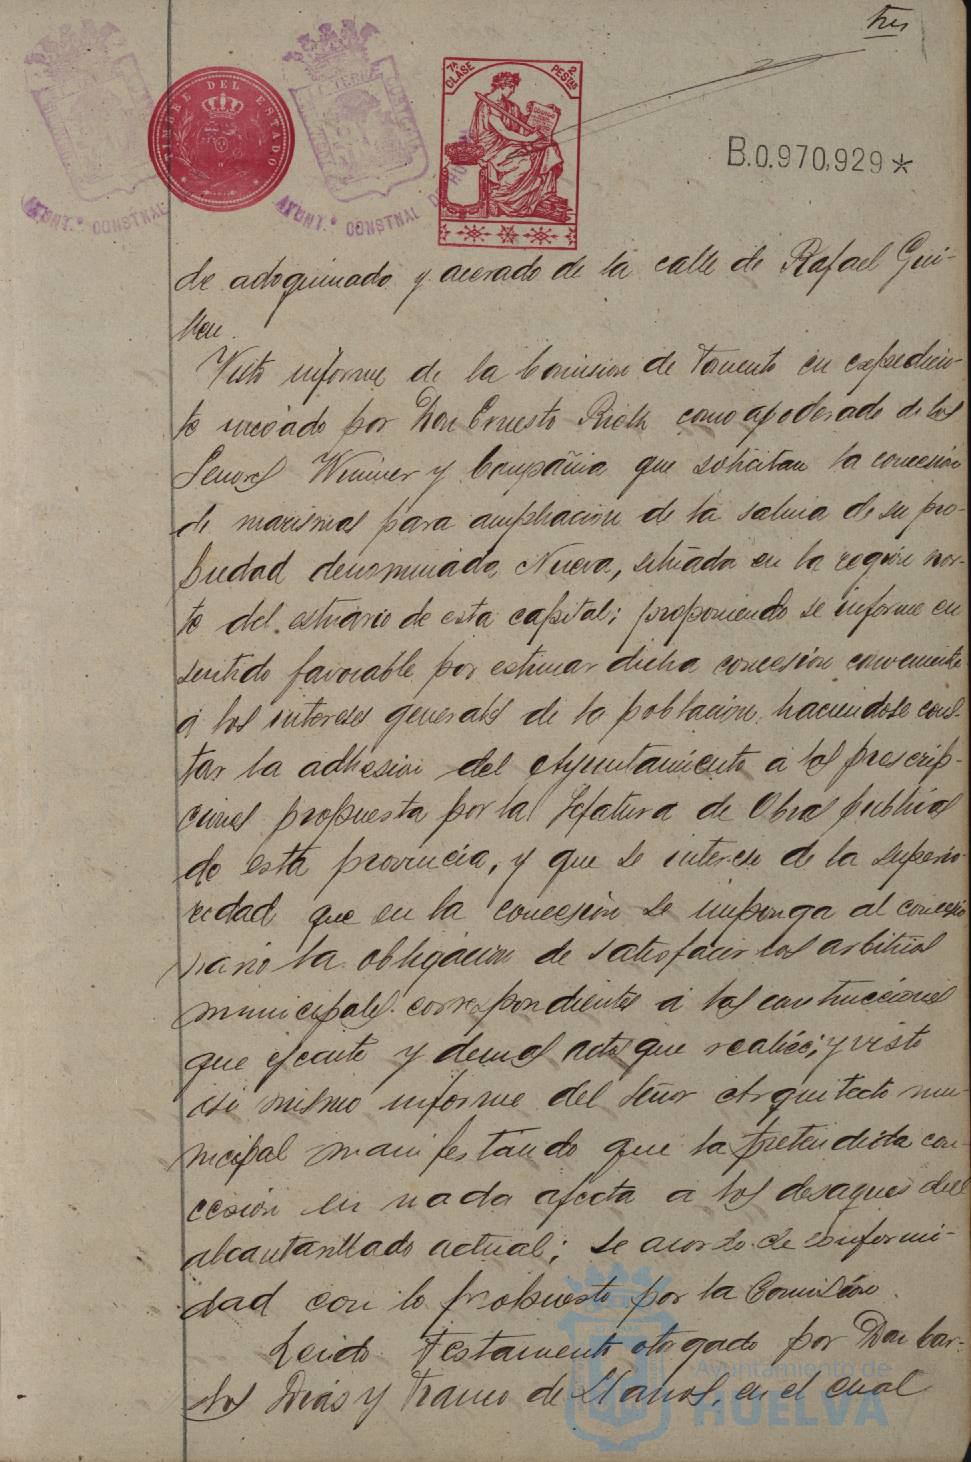 tres
TIMBRE DEL ESTADO
7ª CLASE
2 PESETAS
B.0.970,929*
AYUNT.º CONSTNAL
AYUNT.º CONSTNAL DE HUELVA
de adoquinado y acerado de la calle de Rafael Gui-
llen.
Visto informe de la Comision de Fomento en expedien-
te incoado por Don Ernesto Rioth como apoderado de los
Señores Winiver y Compañia que solicitan la concesion
de marismas para ampliacion de la salina de su pro-
piedad denominada Nueva, situada en la region nor-
te del estuario de esta capital; proponiendo se informe en
sentido favorable por estimar dicha concesion conveniente
a los intereses generales de la poblacion, haciendose cons-
tar la adhesion del Ayuntamiento a las prescrip-
ciones propuesta por la Jefatura de Obras publicas
de esta provincia, y que se interese de la superio-
ridad que en la concesion se imponga al concesio
nario la obligacion de satisfacer los arbitrios
municipales correspondientes a las construcciones
que ejecute y demas actos que realice; y visto
asi mismo informe del Señor Arquitecto mu-
nicipal manifestando que la pretendida con-
cesion en nada afecta a los desagues del
alcantarillado actual; se acordo de conformi-
dad con lo propuesto por la Comision.
Leido testamento otorgado por Don Car-
los Dias y Franco de Llanos, en el cual
Ayuntamiento de
HUELVA